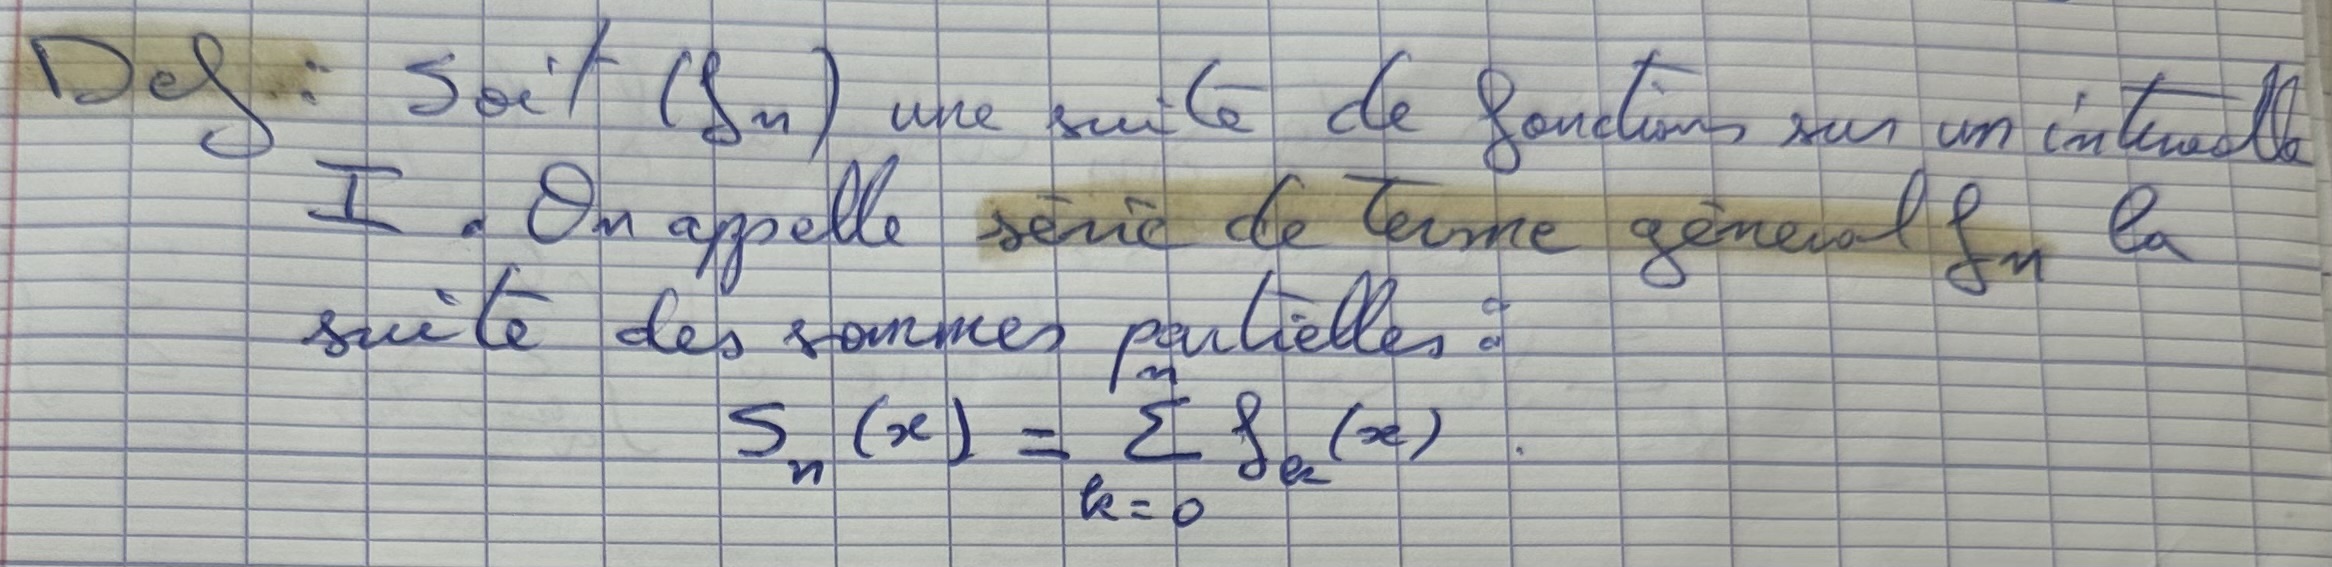 Def : Soit (fn) une suite de fonctions sur un intervalle
I . On appelle série de terme général fn la
suite des sommes partielles :
Sn(x) = Σ_{k=0}^{n} fk(x) .